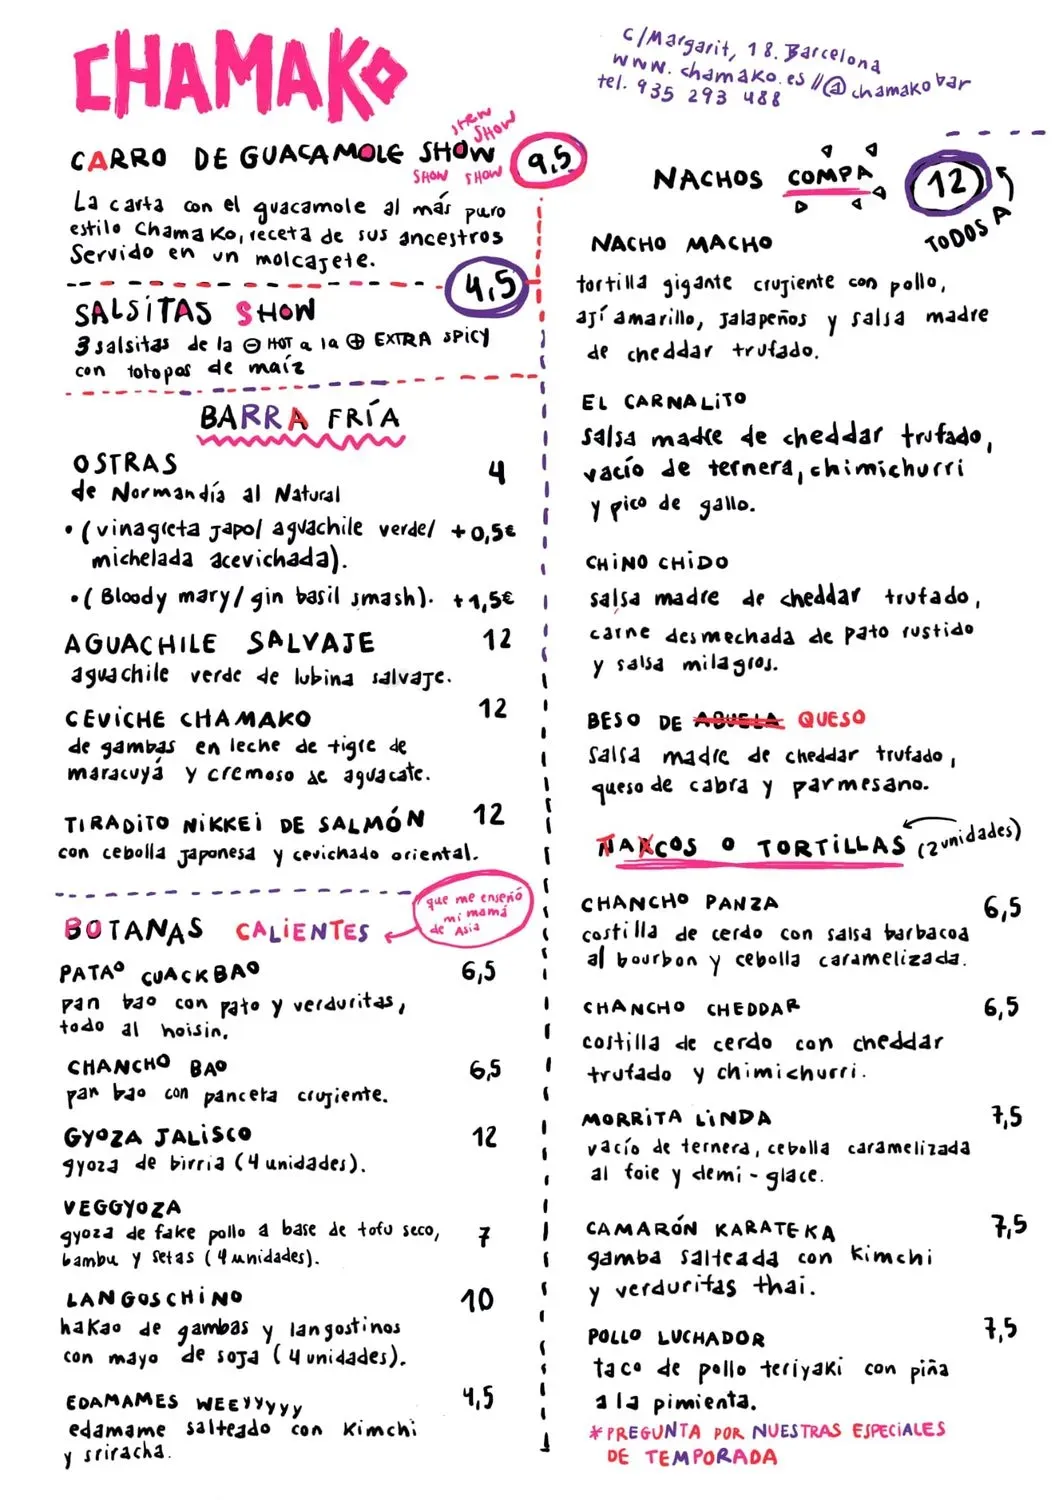 CHAMAKO
C/Margarit, 18. Barcelona
www.chamako.es // @chamakobar
tel. 935 293 488
CARRO DE GUACAMOLE SHOW SHOW SHOW SHOW SHOW 9,5
La carta con el guacamole al más puro
estilo ChamaKo, receta de sus ancestros
Servido en un molcajete.
SALSITAS SHOW 4,5
3 salsitas de la ⊖ HOT a la ⊕ EXTRA SPICY
con totopos de maíz
BARRA FRÍA
OSTRAS 4
de Normandía al Natural
• (vinagreta Japo/ aguachile verde/ +0,5€
michelada acevichada).
• (Bloody mary/ gin basil smash). +1,5€
AGUACHILE SALVAJE 12
aguachile verde de lubina salvaje.
CEVICHE CHAMAKO 12
de gambas en leche de tigre de
maracuyá y cremoso de aguacate.
TIRADITO NIKKEI DE SALMÓN 12
con cebolla japonesa y cevichado oriental.
BOTANAS CALIENTES
que me enseñó
mi mamá
de Asia
PATAO CUACKBAO 6,5
pan bao con pato y verduritas,
todo al hoisin.
CHANCHO BAO 6,5
pan bao con panceta crujiente.
GYOZA JALISCO 12
gyoza de birria (4 unidades).
VEGGYOZA
gyoza de fake pollo a base de tofu seco, 7
bambu y setas (4 unidades).
LANGOSCHINO 10
hakao de gambas y langostinos
con mayo de soja (4 unidades).
EDAMAMES WEEYYYYY 4,5
edamame salteado con Kimchi
y sriracha.
NACHOS COMPA 12
TODOS A
NACHO MACHO
tortilla gigante crujiente con pollo,
ají amarillo, Jalapeños y salsa madre
de cheddar trufado.
EL CARNALITO
Salsa madre de cheddar trufado,
vacío de ternera, chimichurri
y pico de gallo.
CHINO CHIDO
salsa madre de cheddar trufado,
carne desmechada de pato rustido
y salsa milagros.
BESO DE ABUELA QUESO
Salsa madre de cheddar trufado,
queso de cabra y parmesano.
TAXCOS O TORTILLAS (2 unidades)
CHANCHO PANZA 6,5
costilla de cerdo con salsa barbacoa
al bourbon y cebolla caramelizada.
CHANCHO CHEDDAR 6,5
costilla de cerdo con cheddar
trufado y chimichurri.
MORRITA LINDA 7,5
vacío de ternera, cebolla caramelizada
al foie y demi-glace.
CAMARÓN KARATEKA 7,5
gamba salteada con Kimchi
y verduritas thai.
POLLO LUCHADOR 7,5
taco de pollo teriyaki con piña
a la pimienta.
* PREGUNTA POR NUESTRAS ESPECIALES
DE TEMPORADA